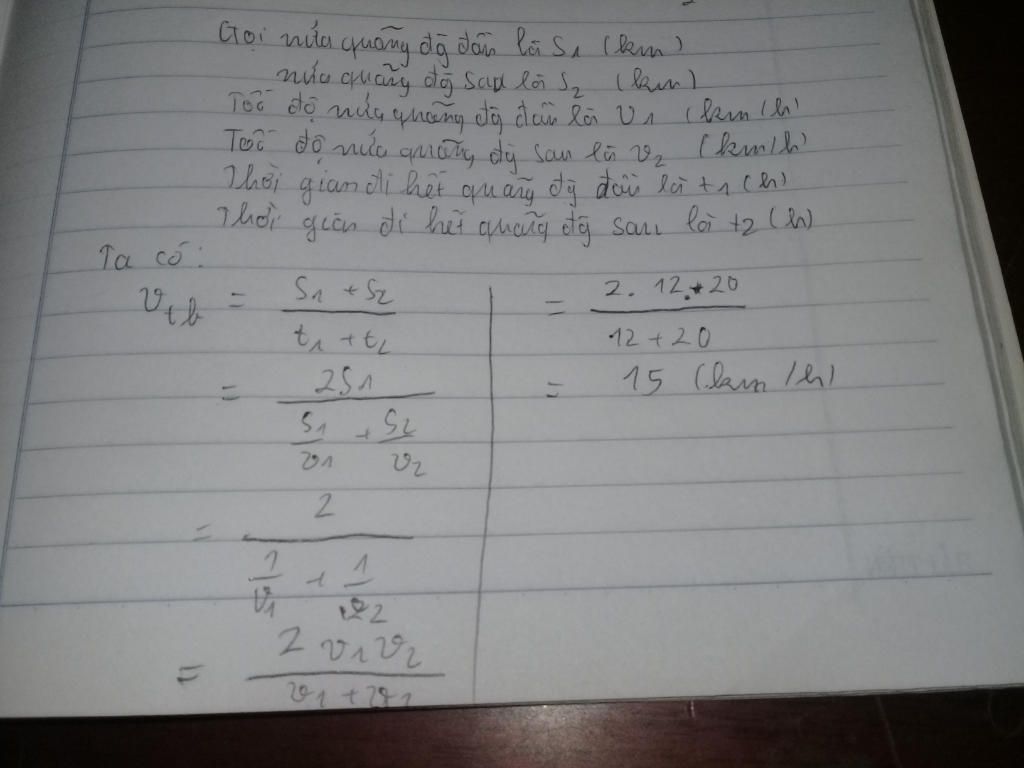 Gọi nửa quãng đg đầu là S1 (km)
nửa quãng đg sau là S2 (km)
Tốc độ nửa quãng đg đầu là v1 (km/h)
Tốc độ nửa quãng đg sau là v2 (km/h)
Thời gian đi hết quãng đg đầu là t1 (h)
Thời gian đi hết quãng đg sau là t2 (h)
Ta có:
vtb = (S1 + S2) / (t1 + t2)
= 2S1 / (S1/v1 + S2/v2)
= 2 / (1/v1 + 1/v2)
= 2v1v2 / (v1 + v2)
= 2.12.20 / (12 + 20)
= 15 (km/h)